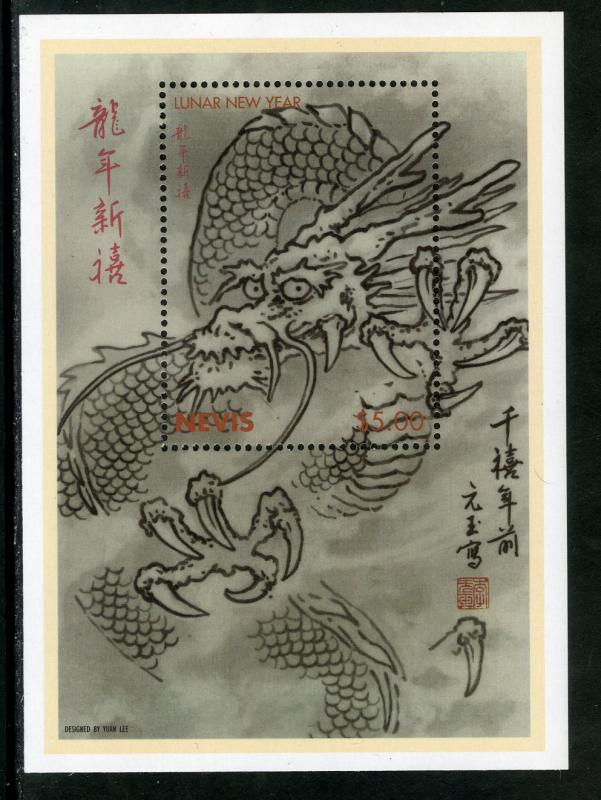 龍年新禧
LUNAR NEW YEAR
龍年新禧
NEVIS
$5.00
千禧年前
元玉寫
DESIGNED BY YUAN LEE